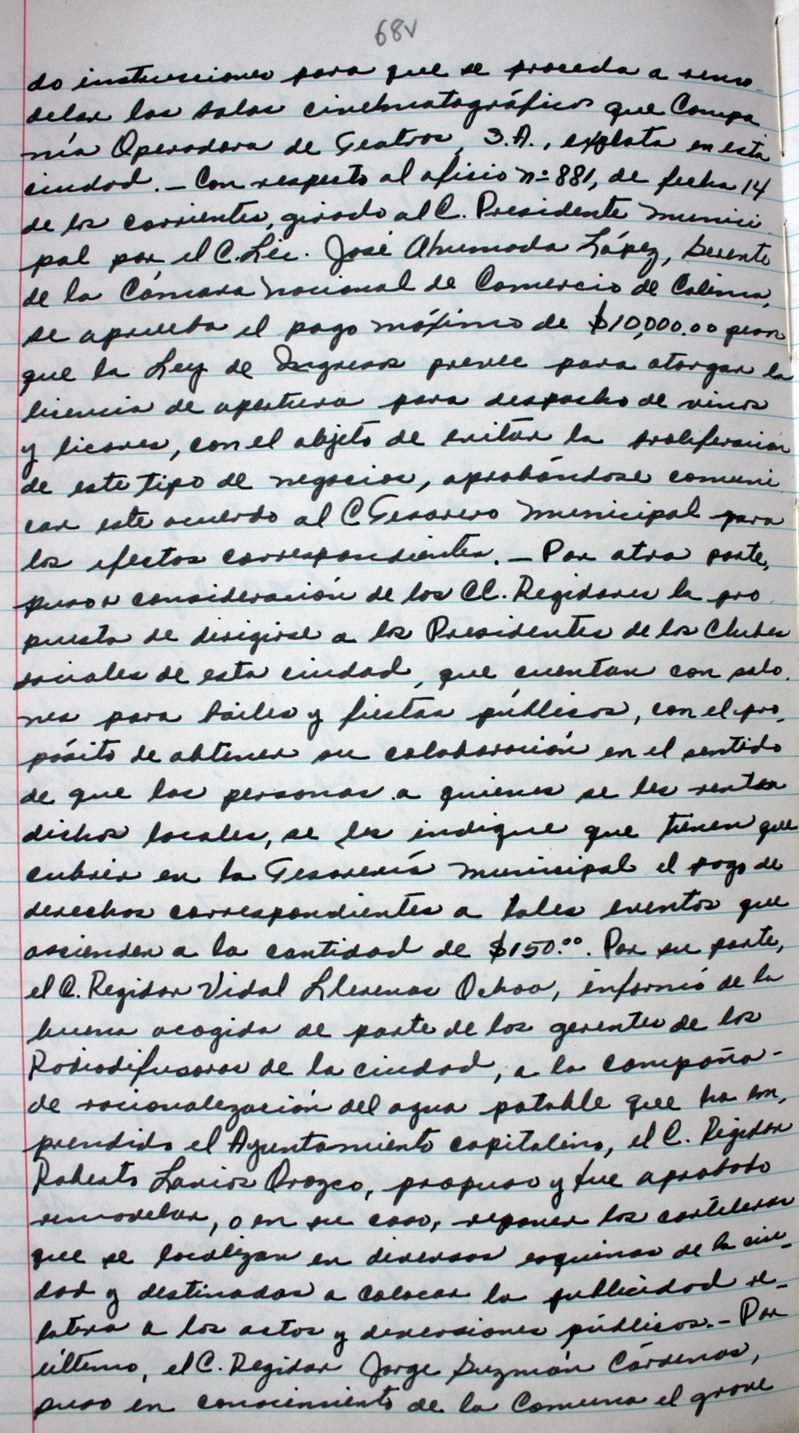 68v
do instrucciones para que se proceda a remo-
delar las salas cinematográficas que Compa
ñía Operadora de Teatros, S.A., explota en esta
ciudad.- Con respecto al oficio nº 881, de fecha 14
de los corrientes, girado al C. Presidente Munici
pal por el C. Lic. José Ahumada López, Gerente
de la Cámara Nacional de Comercio de Colima,
se aprueba el pago máximo de $10,000.00 pesos
que la Ley de Ingresos prevee para otorgar la
licencia de apertura para despacho de vinos
y licores, con el objeto de evitar la proliferación
de este tipo de negocios, aprobándose comuni
car este acuerdo al C. Tesorero Municipal para
los efectos correspondientes.- Por otra parte,
puso a consideración de los CC. Regidores la pro
puesta de dirigirse a los Presidentes de los Clubes
sociales de esta ciudad, que cuentan con salo.
nes para bailes y fiestas públicos, con el pro-
pósito de obtener su colaboración en el sentido
de que las personas a quienes se les rentan
dichos locales, se les indique que tienen que
cubrir en la Tesorería Municipal el pago de
derechos correspondientes a tales eventos que
ascienden a la cantidad de $150.00. Por su parte,
el C. Regidor Vidal Llerenas Ochoa, informó de la
buena acogida de parte de los gerentes de las
Radiodifusoras de la ciudad, a la campaña-
de racionalización del agua potable que ha em-
prendido el Ayuntamiento capitalino, el C. Regidor
Roberto Larios Orozco, propuso y fue aprobado
remodelar, o en su caso, reponer las carteleras
que se localizan en diversas esquinas de la ciu-
dad y destinadas a colocar la publicidad re-
lativa a los actos y diversiones públicos.- Por
último, el C. Regidor Jorge Guzmán Cárdenas,
puso en conocimiento de la Comuna el grave